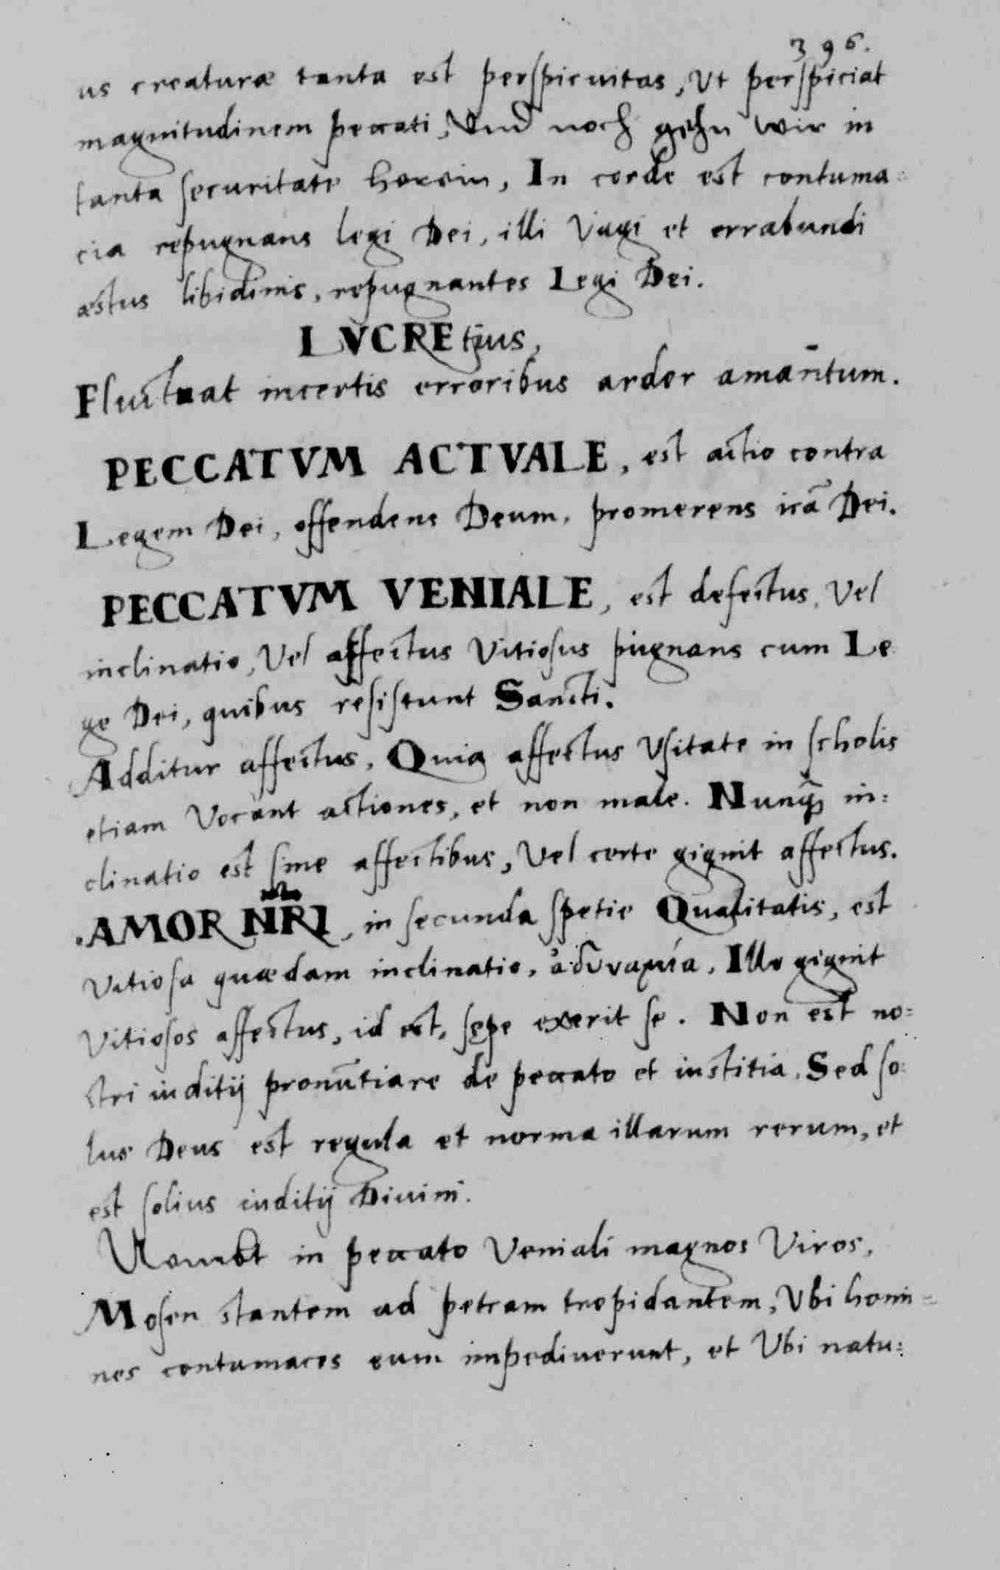 396.
us creaturæ tanta est perspicuitas, Vt perspiciat
magnitudinem peccati, Vnd noch gehn wir in
tanta securitate herein, In corde est contuma=
cia repugnans legi Dei, illi Vagi et errabundi
æstus libidinis, repugnantes Legi Dei.
LVCREtius,
Fluctuat incertis erroribus ardor amantum.
PECCATVM ACTVALE, est actio contra
Legem Dei, offendens Deum, promerens irã Dei.
PECCATVM VENIALE, est defectus, Vel
inclinatio, Vel affectus Vitiosus pugnans cum Le
ge Dei, quibus resistunt Sancti.
Additur affectus, Quia affectus Vsitate in scholis
etiam Vocant actiones, et non male. Nunq̃ in=
clinatio est sine affectibus, Vel certe gignit affectus.
AMOR NR̃I, in secunda spetie Qualitatis, est
Vitiosa quædam inclinatio, ἀδυναμία, Illa gignit
Vitiosos affectus, id est, sępe exerit se. Non est no=
stri iuditij pronũtiare de peccato et iustitia, Sed so=
lus Deus est regula et norma illarum rerum, et
est solius iuditij Diuini.
in peccato Veniali magnos Viros,
Mosen stantem ad petram trepidantem, Vbi homi=
nes contumaces eum impediuerunt, et Vbi natu=